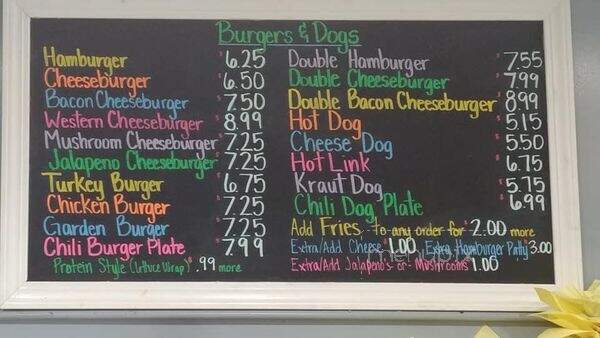 Burgers & Dogs
Hamburger $6.25
Cheeseburger $6.50
Bacon Cheeseburger $7.50
Western Cheeseburger $8.99
Mushroom Cheeseburger $7.25
Jalapeno Cheeseburger $7.25
Turkey Burger $6.75
Chicken Burger $7.25
Garden Burger $7.25
Chili Burger Plate $7.99
Protein Style (Lettuce Wrap) $.99 more
Double Hamburger $7.55
Double Cheeseburger $7.99
Double Bacon Cheeseburger $8.99
Hot Dog $5.15
Cheese Dog $5.50
Hot Link $6.75
Kraut Dog $5.75
Chili Dog Plate $6.99
Add Fries - To any order for $2.00 more
Extra/Add Cheese $1.00 Extra Hamburger Patty $3.00
Extra/Add Jalapeño's or Mushrooms $1.00